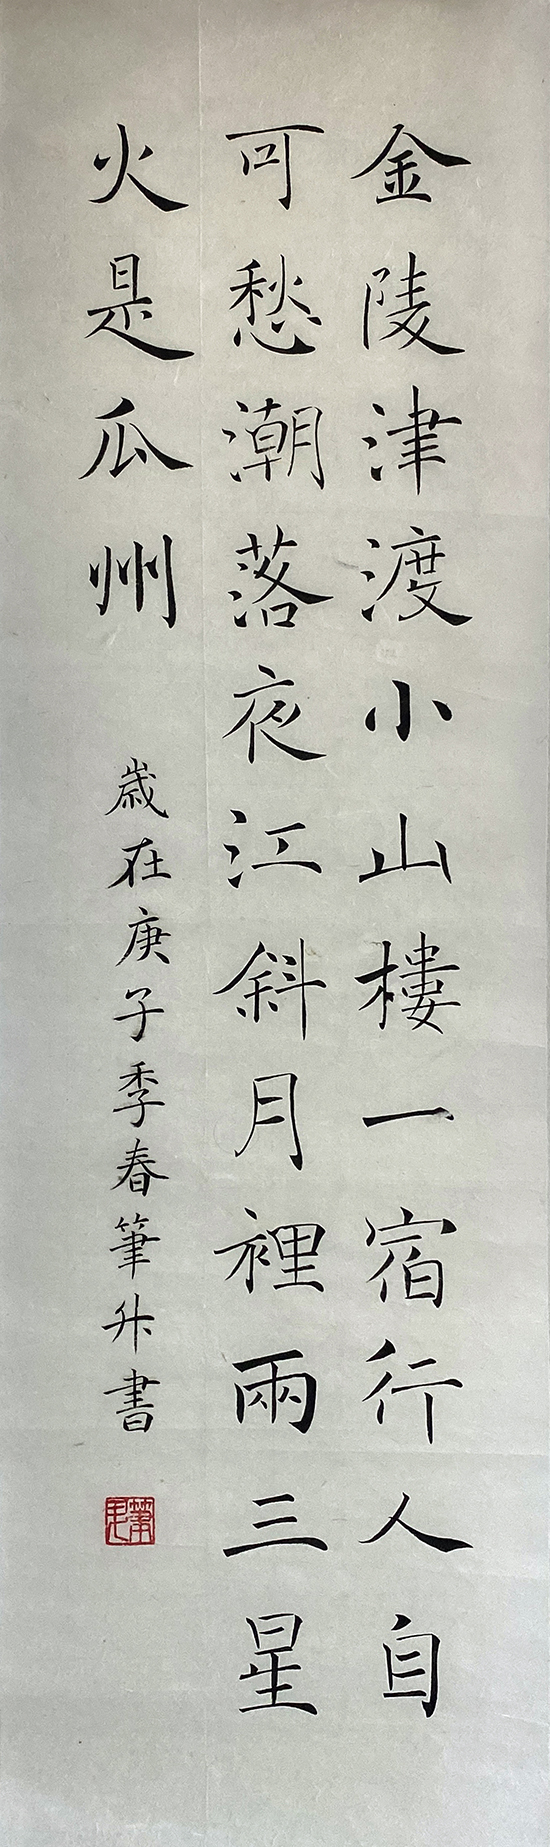 金陵津渡小山樓一宿行人自
可愁潮落夜江斜月裡兩三星
火是瓜州
歲在庚子季春筆升書